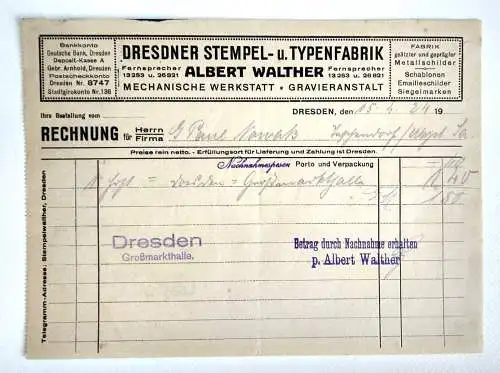 Bankkonto
Deutsche Bank, Dresden
Deposit.-Kasse A
Gebr. Arnhold, Dresden
Postscheckkonto
Dresden Nr. 8747
Stadtgirokonto Nr. 136
DRESDNER STEMPEL- u. TYPENFABRIK
Fernsprecher 13253 u. 26821
ALBERT WALTHER
Fernsprecher 13253 u. 26821
MECHANISCHE WERKSTATT • GRAVIERANSTALT
FABRIK
geätzter und geprägter
Metallschilder
Schablonen
Emailleschilder
Siegelmarken
Ihre Bestellung vom
DRESDEN, 15. 4. 24 19
RECHNUNG für Herrn Firma Paul Nowak
Preise rein netto. - Erfüllungsort für Lieferung und Zahlung ist Dresden.
Nachnahmespesen Porto und Verpackung 40
1 = Dresden = Großmarkthalle
1 80
Dresden
Großmarkthalle.
Betrag durch Nachnahme erhalten
p. Albert Walther
Telegramm-Adresse: Stempelwalther, Dresden